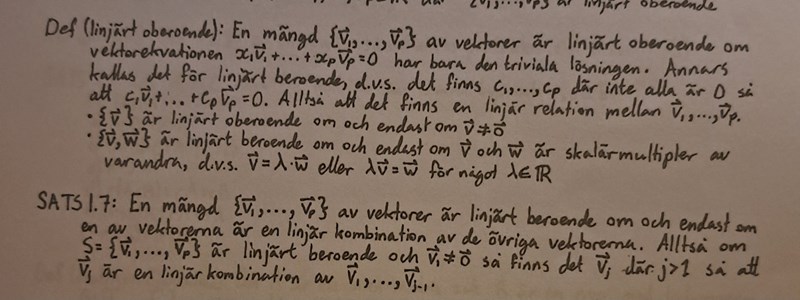 {v⃗₁,...,v⃗ₚ} är linjärt oberoende
Def (linjärt oberoende): En mängd {v⃗₁,...,v⃗ₚ} av vektorer är linjärt oberoende om
vektorekvationen x₁v⃗₁+...+xₚv⃗ₚ=0 har bara den triviala lösningen. Annars
kallas det för linjärt beroende, d.v.s. det finns c₁,...,cₚ där inte alla är 0 så
att c₁v⃗₁+...+cₚv⃗ₚ=0. Alltså att det finns en linjär relation mellan v⃗₁,...,v⃗ₚ.
• {v⃗} är linjärt oberoende om och endast om v⃗≠0⃗
• {v⃗,w⃗} är linjärt beroende om och endast om v⃗ och w⃗ är skalärmultipler av
varandra, d.v.s. v⃗=λ·w⃗ eller λv⃗=w⃗ för något λ∈ℝ
SATS 1.7: En mängd {v⃗₁,...,v⃗ₚ} av vektorer är linjärt beroende om och endast om
en av vektorerna är en linjär kombination av de övriga vektorerna. Alltså om
S={v⃗₁,...,v⃗ₚ} är linjärt beroende och v⃗₁≠0⃗ så finns det v⃗ⱼ där j>1 så att
v⃗ⱼ är en linjär kombination av v⃗₁,...,v⃗ⱼ₋₁.